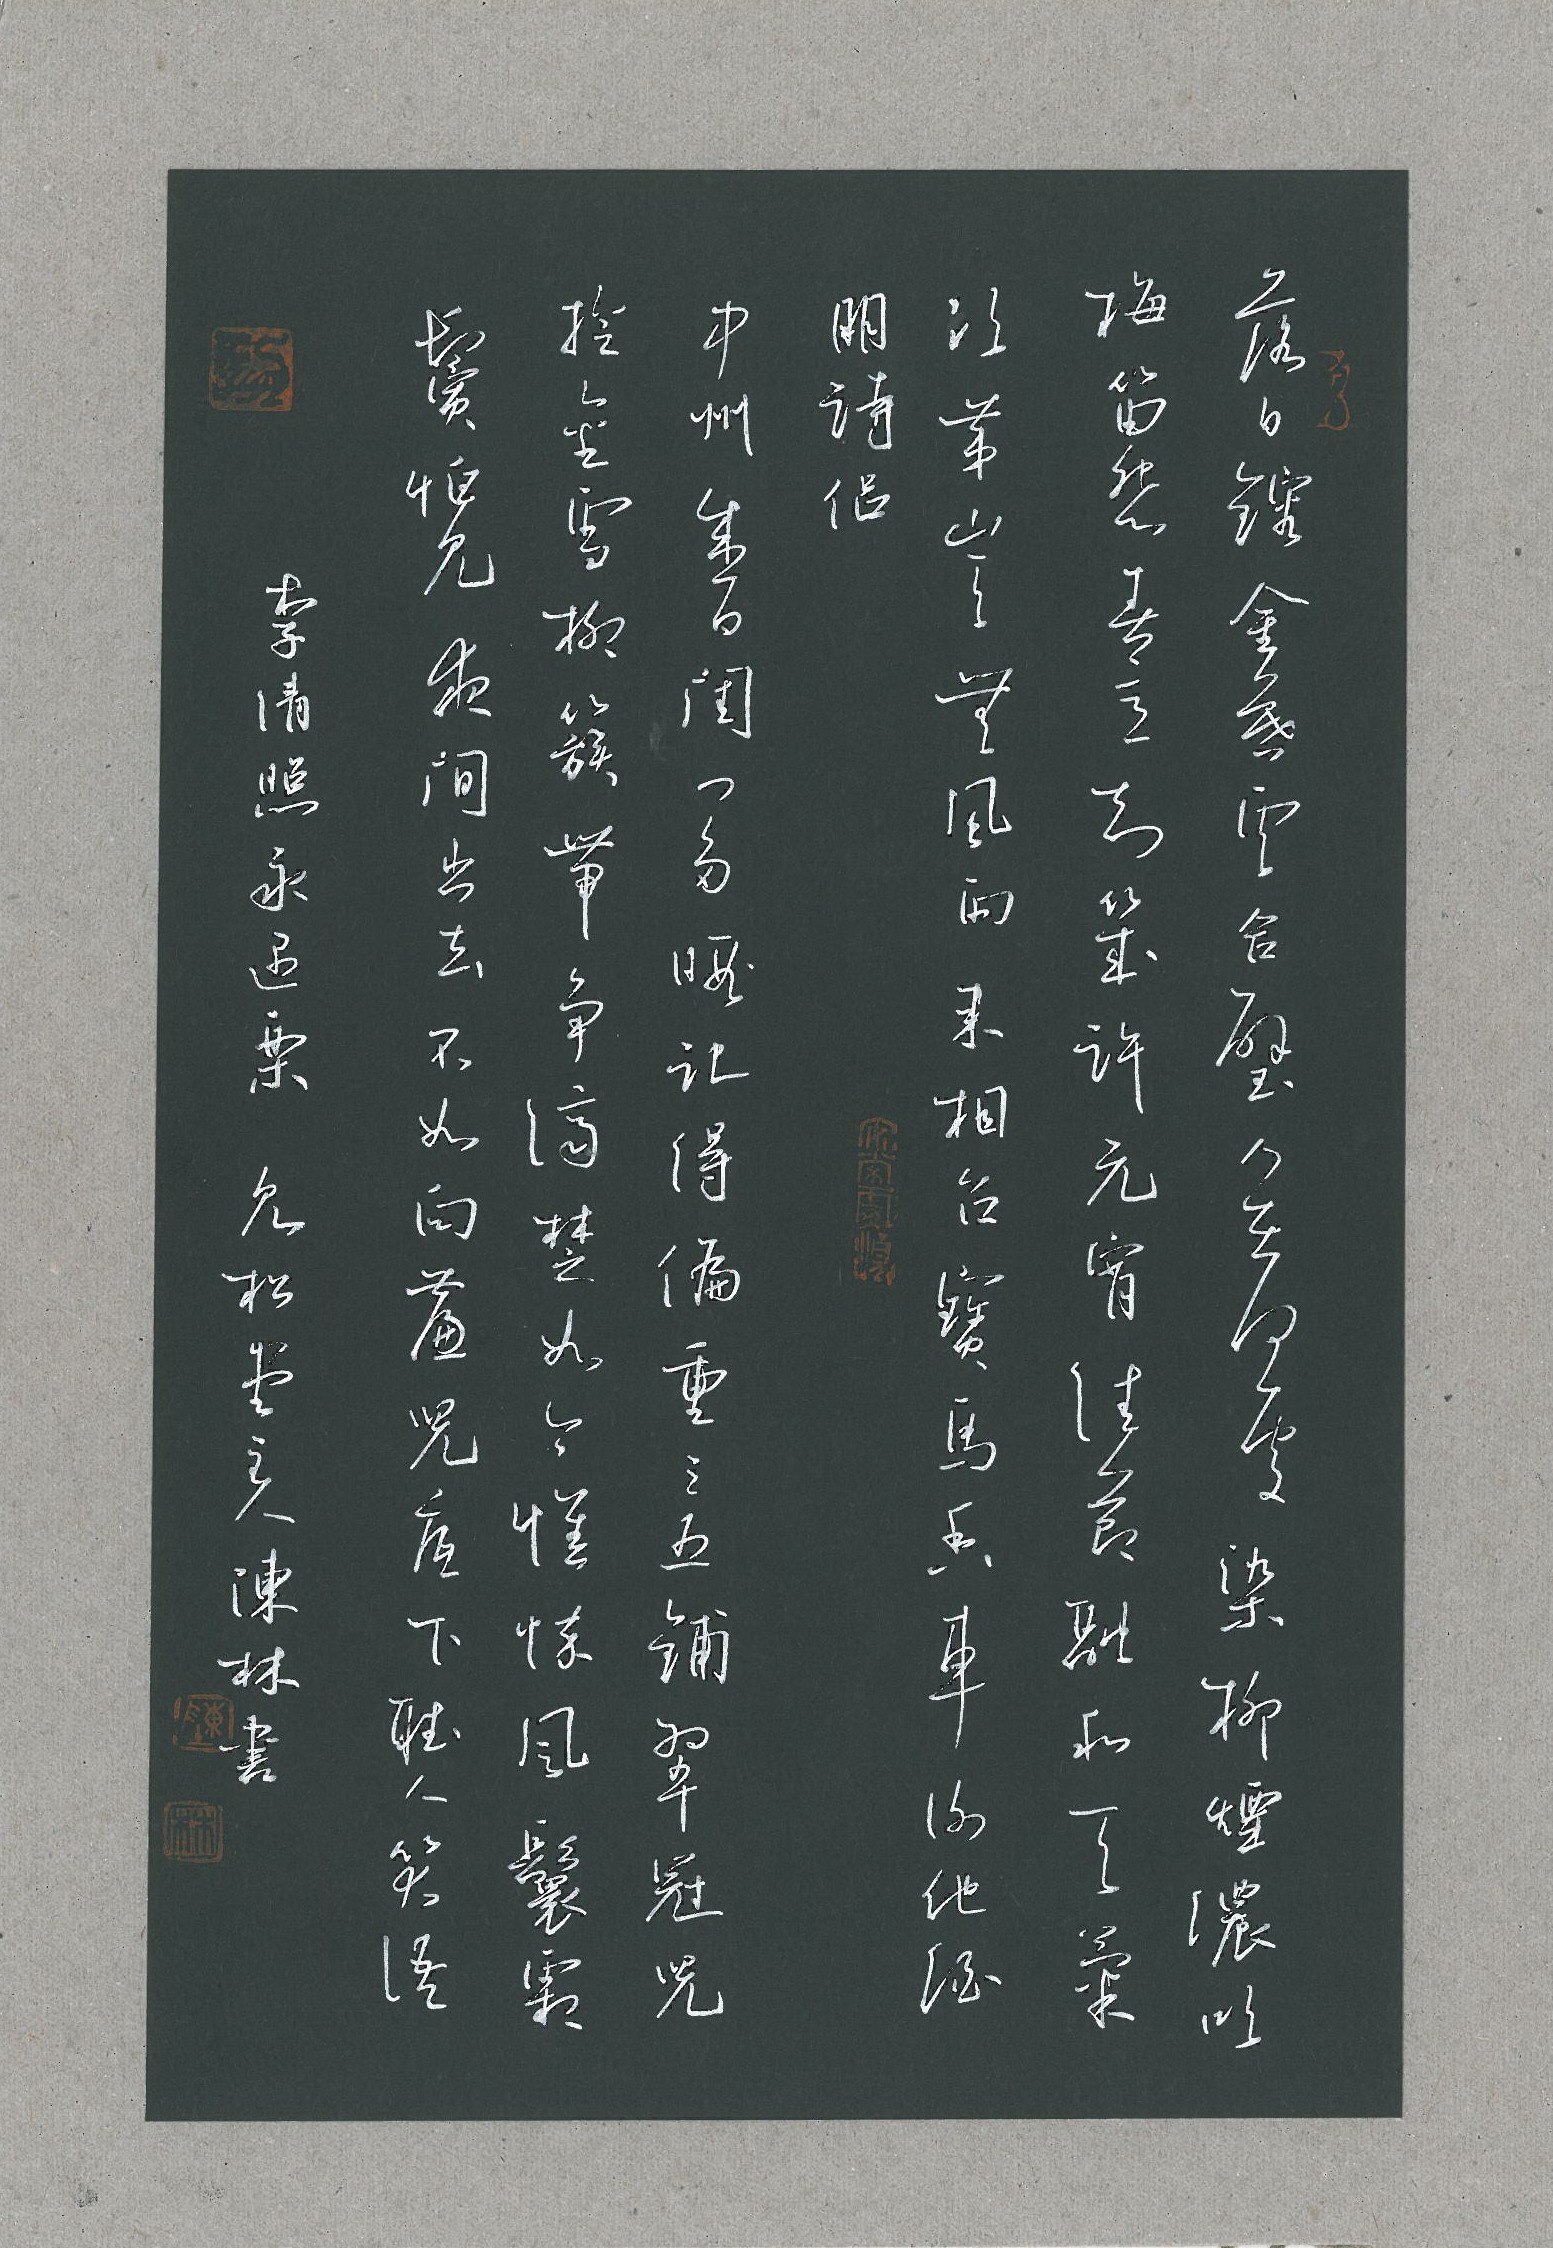 落日鎔金暮雲合璧人在何處染柳煙濃吹
梅笛怨春意知幾許元宵佳節融和天氣
次第豈無風雨來相召寶馬香車謝他酒
朋詩侶
中州盛日閨門多暇記得偏重三五鋪翠冠兒
撚金雪柳簇帶爭濟楚如今憔悴風鬟霜
鬢怕見夜間出去不如向簾兒底下聽人笑語
李清照永遇樂 見松堂主人陳林書
陳
林